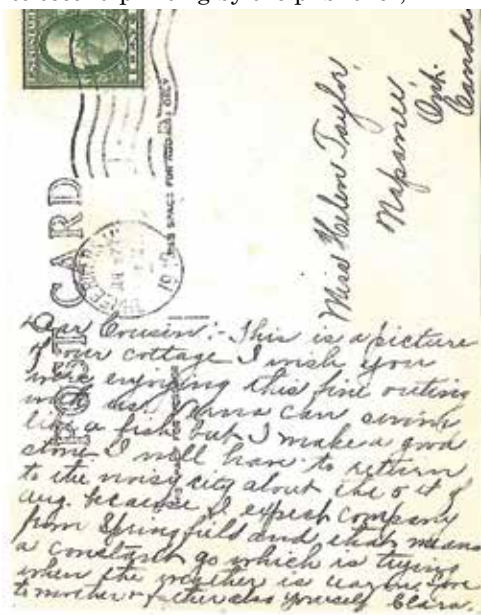 Miss Helen Taylor,
Napanee
Ont.
Canda
POST CARD
THIS SPACE FOR ADDRESS ONLY
Dear Cousin:- This is a picture
of our cottage I wish you
were enjoying this fine outing
with us. Verna can swim
like a fish but I make a good
stone I will have to return
to the noisy city about the of
aug. because I expect company
from Springfield and that means
a constant go which is trying
when the weather is warm, love
to mother & father also yourself Clara.